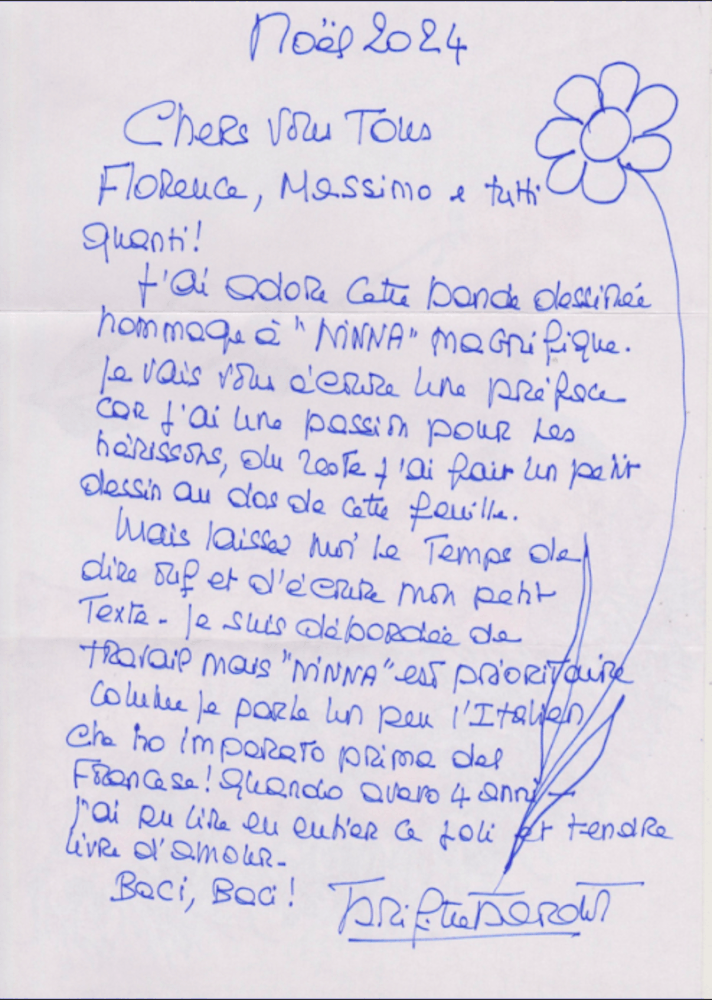 Noël 2024
Chers vous Tous
Florence, Massimo e tutti
quanti!
J'ai adoré cette bande dessinée
hommage à "NiNNA" magnifique.
Je vais vous écrire une préface
car j'ai une passion pour les
hérissons, du reste j'ai fait un petit
dessin au dos de cette feuille.
Mais laissez moi le Temps de
dire ouf et d'écrire mon petit
Texte - Je suis débordée de
travail mais "NiNNA" est prioritaire
comme je parle un peu l'Italien
che ho imparato prima del
Francese! Quando avevo 4 anni -
J'ai pu lire en entier ce joli et tendre
livre d'amour -
Baci, Baci!
Brigitte Bardot